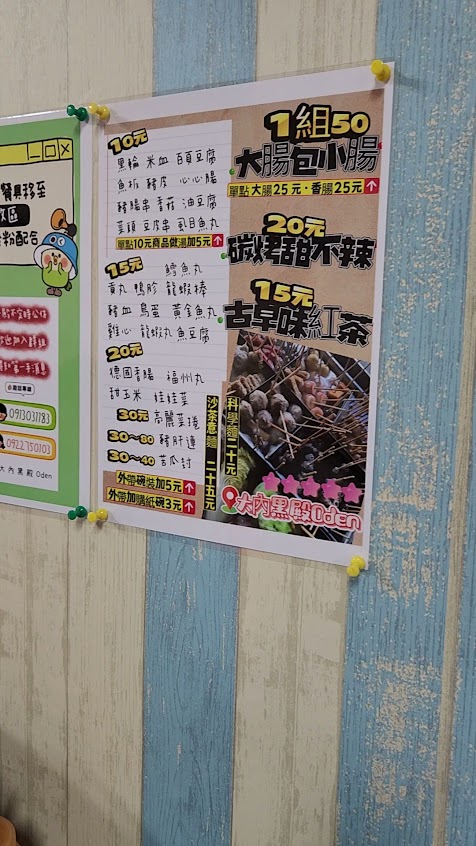 餐具移至
粉配合
小剛臉專線
0913031183
0922750103
大內黑殿Oden
10元
黑輪 米血 百頁豆腐
魚板 豬皮 心心腸
豬腸串 香菇 油豆腐
菜頭 豆皮串 虱目魚丸
單點10元商品做湯加5元
15元 鱈魚丸
貢丸 鴨胗 龍蝦棒
豬血 鳥蛋 黃金魚丸
雞心 龍蝦丸 魚豆腐
20元
德國香腸 福州丸
甜玉米 娃娃菜
30元 高麗菜捲
30～80 豬肝連
30～40 苦瓜封
外帶碗裝加5元
外帶加購紙碗3元
1組50
大腸包小腸
單點 大腸25元·香腸25元
20元
碳烤甜不辣
15元
古早味紅茶
科學麵二十元
沙茶意麵 二十五元
大內黑殿Oden